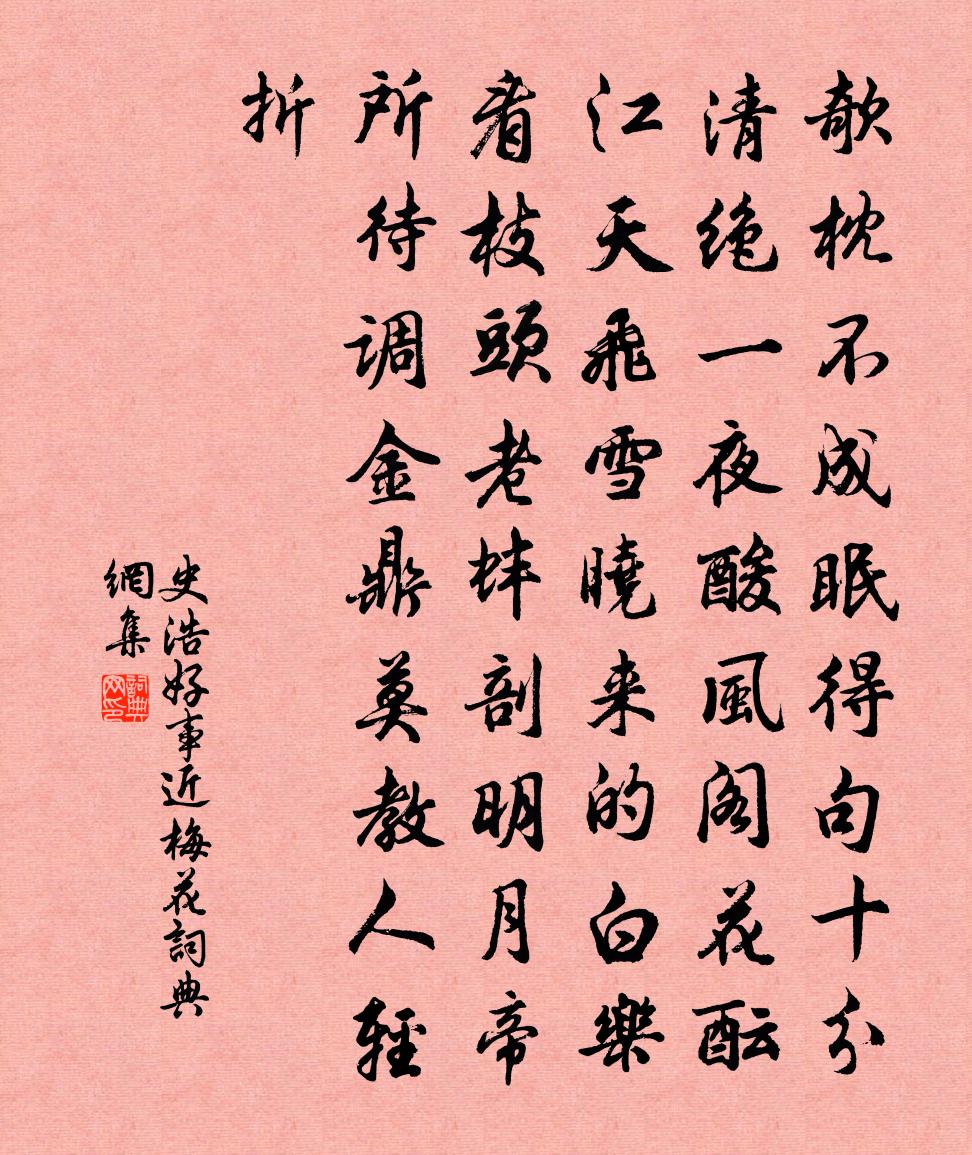 欹枕不成眠得句十分
清绝一夜酸風阁花酝
江天飛雪曉来的白樂
看枝頭老蚌剖明月帝
所待调金鼎莫教人輕
折
史浩好事近梅花詞典
網集
詞典